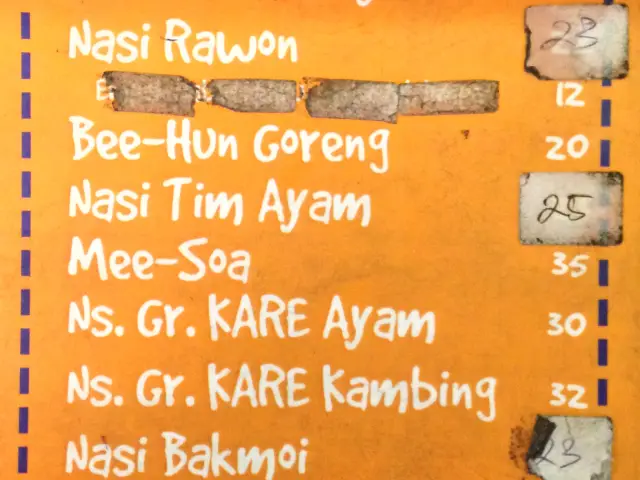 Nasi Rawon 23
12
Bee-Hun Goreng 20
Nasi Tim Ayam 25
Mee-Soa 35
Ns. Gr. KARE Ayam 30
Ns. Gr. KARE Kambing 32
Nasi Bakmoi 23